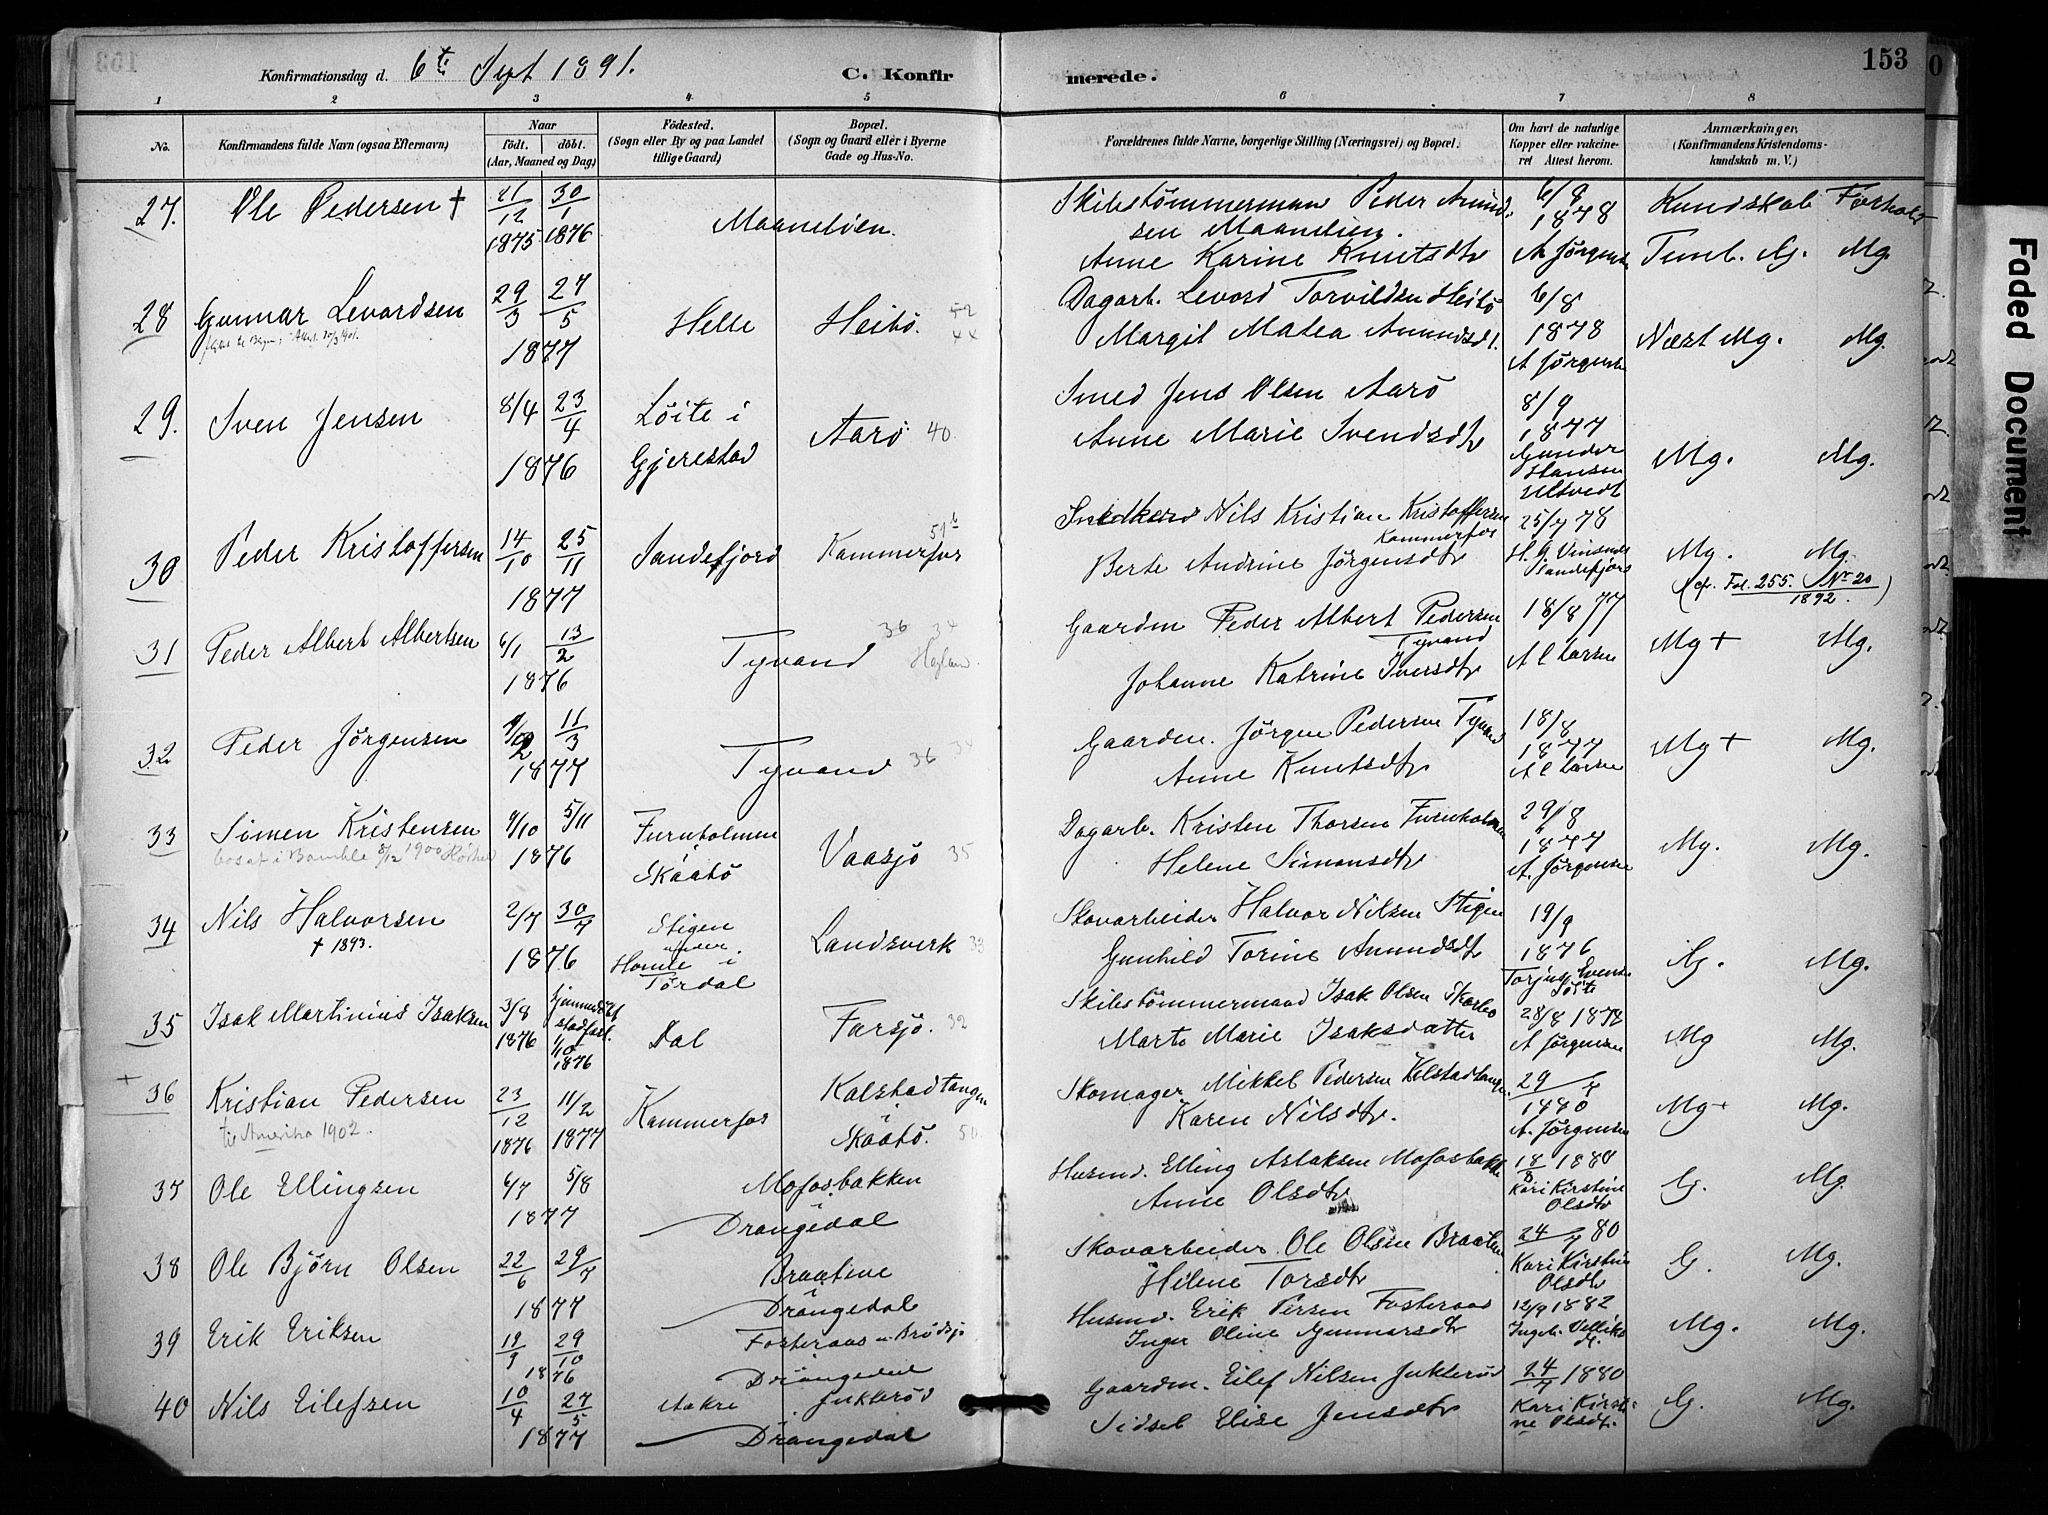 153
Konfirmationsdag d. 6te Sept 1891. C. Konfirmerede.
1 2 3 4 5 6 7 8
No. Konfirmandens fulde Navn (ogsaa Efternavn) Naar födt. döbt. (Aar, Maaned og Dag) Födested. (Sogn eller By og paa Landet tillige Gaard) Bopæl. (Sogn og Gaard eller i Byerne Gade og Hus-No. Forældrenes fulde Navne, borgerlige Stilling (Næringsvei) og Bopæl. Om havt de naturlige Kopper eller vakcineret Attest herom. Anmærkninger, (Konfirmandens Kristendomskundskab m. V.)
27. Ole Pedersen + 21/12 1875 30/1 1876
Skibstömmermand Peder Amundsen
Anne Karine Knutsdtr 6/9 1878 A Jørgensen
Kundskab Forhold
Mg.
28 Gunnar Levordsen 29/3 27/5 1877 Helle Heibö. 44
Dagarb. Levord Torvildsen Heibö
Margit Matea Amundsdt. 6/8 1878 A Jørgensen Næst Mg. Mg.
29. Sven Jensen 8/4 23/4 1876 Löite i Gjerestad Aarö. 40.
Smed Jens Olsen Aarö
Anne Marie Svendsdtr 8/9 1877 Gunder Hansen Mg. Mg.
30 Peder Kristoffersen 14/10 25/11 1877 Sandefjord Kammerfos
Nils Kristian Kristoffersen Kammerfos
Berte Andrine Jørgensdtr 25/7 78 Sandefjord Mg. Mg.
(cfr. Fol. 255. Nr 20 1892.)
31 Peder Albert Albertsen 6/1 13/2 1876 Tyvand 36 34
Gaardm Peder Albert Pedersen Tyvand
Johanne Katrine Iversdtr 18/8 77 A C Larsen Mg + Mg.
32 Peder Jørgensen 11/3 1877 Tyvand 36 34
Gaardm. Jørgen Pedersen Tyvand
Anne Knutsdtr 18/8 1877 A C Larsen Mg + Mg.
33 Simen Kristensen 9/10 5/11 1876 Furuholmen i Skaatö Vaasjö 35
bosat i Bamble 5/12 1900
Dagarb. Kristen Thorsen Furuholmen
Helene Simonsdtr 29/8 1877 A. Jørgensen Mg. Mg.
34 Nils Halvorsen 2/7 30/7 1876 Stigen under Homle i Tørdal Landsverk 33
+ 1893.
Skovarbeider Halvor Nilsen Stigen
Gunhild Torine Amundsdtr 19/9 1876 G. Mg.
35 Isak Martinius Isaksen 3/8 1876 1876 Dal Farsjø. 32
Skibstömmermand Isak Olsen
Marte Marie Isaksdatter A Jørgensen Mg Mg.
+ 36 Kristian Pedersen 23/12 1876 11/2 1877 Kammerfos Kalstadtangen i Skaatö. 50.
til Amerika 1902.
Skomager Mikkel Pedersen Kalstadtangen
Karen Nilsdtr. 29/7 1880 A. Jørgensen Mg+ Mg.
37 Ole Ellingsen 6/7 5/8 1877 Mofosbakken i Drangedal
Husmd. Elling Aslaksen Mofosbakke
Anne Olsdtr 18/8 1880 Kari Kirstine Olsdtr G. Mg.
38 Ole Bjørn Olsen 22/6 29/7 1877 Braatene i Drangedal
Skovarbeider Ole Olsen Braaten
Helene Torsdtr 24/7 80 Kari Kirstine Olsdtr G. Mg.
39 Erik Eriksen 29/10 1876 Drangedal
Husmd. Erik Persen
Inger Oline Gunnarsdtr 12/9 1882 Mg. Mg.
40 Nils Eilefsen 10/4 27/5 1877 Aakre Juklerød Drangedal
Gaardm. Eilef Nilsen Juklerød
Sidsel Elise Jensdtr 24/7 1880 Kari Kirstine Olsdt. G. Mg.
Faded Document